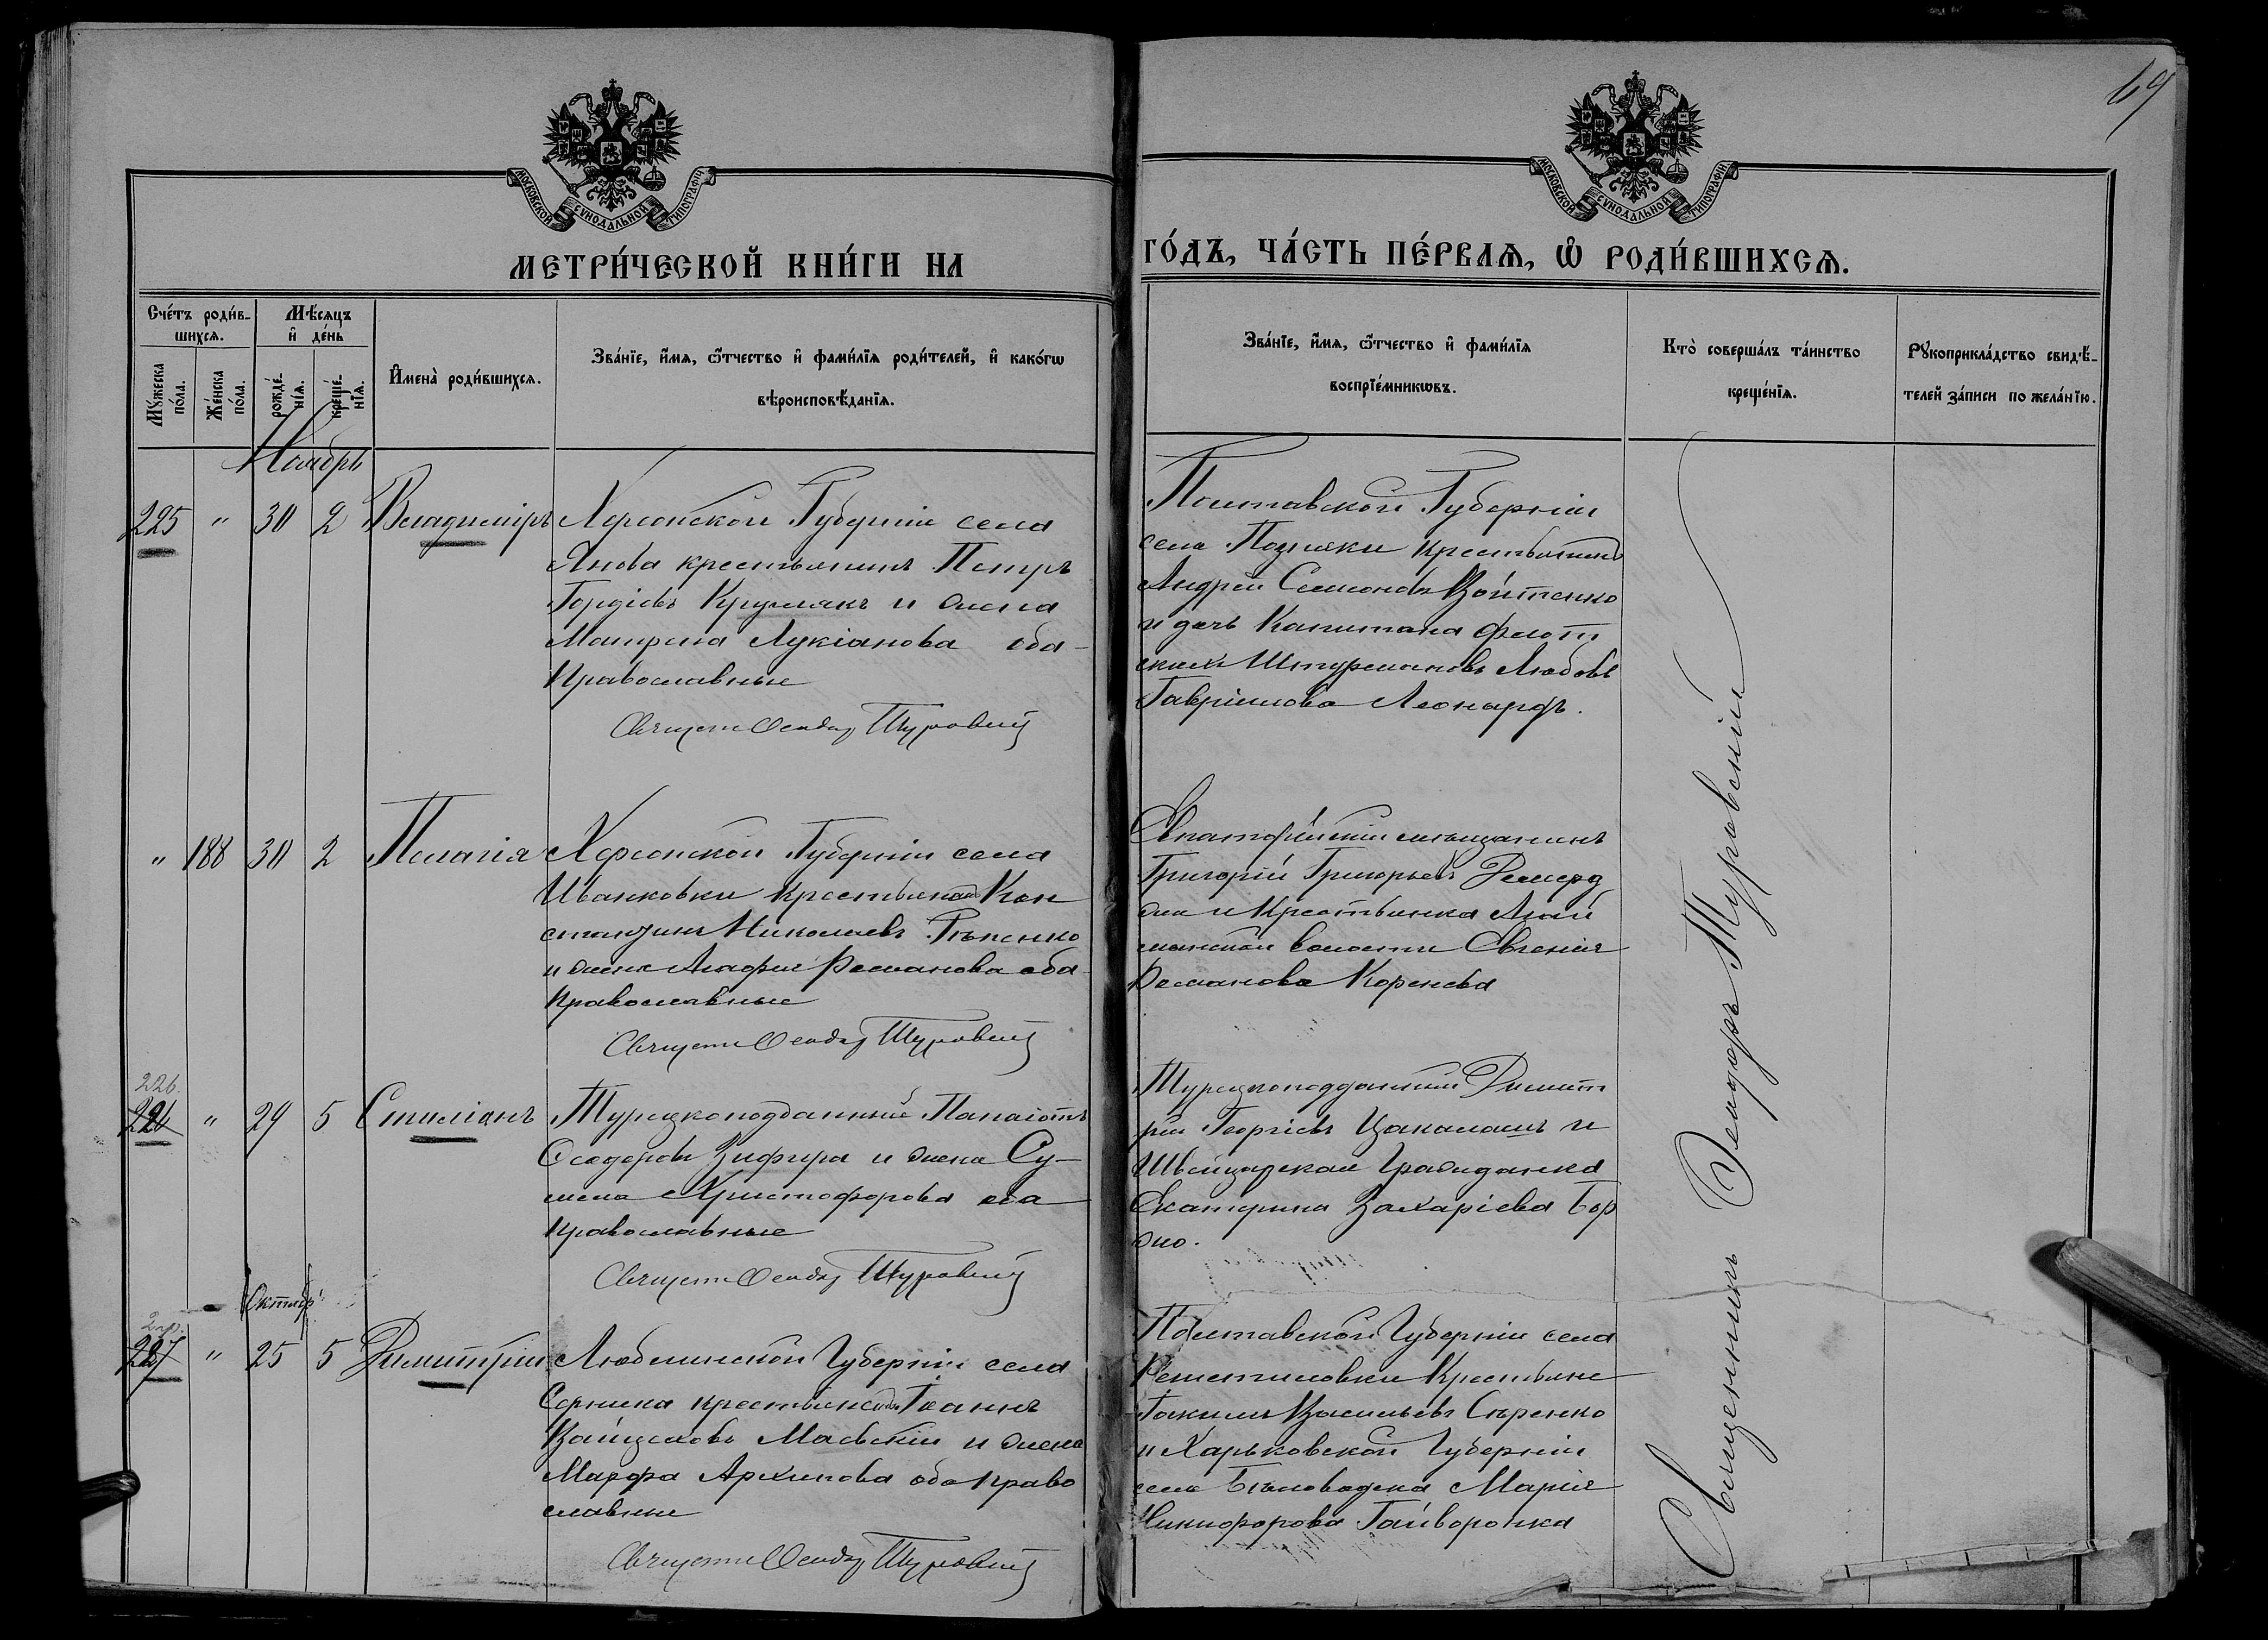 69
МОСКОВСКОЙ СУНОДАЛЬНОЙ ТИПОГРАФІИ
МОСКОВСКОЙ СУНОДАЛЬНОЙ ТИПОГРАФІИ
МЕТРИ́ЧЕСКОЙ КНИ́ГИ НА
ГО́ДЪ, ЧА́СТЬ ПЕ́РВАЯ, Ѡ҆ РОДИ́ВШИХСЯ.
Сче́тъ роди́в-
шихся.
Му́жеска по́ла.
Же́нска по́ла.
Мѣ́сяцъ
и҆ де́нь
рожде́-
нїя.
креще́-
нїя.
И҆мена̀ роди́вшихся.
Зва́нїе, и҆́мя, ѻ҆́тчество и҆ фами́лїя роди́телей, и҆ како́гѡ
вѣроисповѣ́данїя.
Зва́нїе, и҆́мя, ѻ҆́тчество и҆ фами́лїя
воспрїе́мникѡвъ.
Кто̀ соверша́лъ та́инство
креще́нїя.
Рꙋкоприкла́дство свидѣ́-
телей за́писи по жела́нїю.
Ноябрь
225 " 30 2 Владиміръ
Херсонской Губерніи села
Янова крестьянинъ Петръ
Гордіевъ Крумякъ и жена
Матрена Лукіанова оба
Православные
Священ Ѳеодор Туровскій
Полтавской Губерніи
села Позняки крестьянинъ
Андрей Семеновъ Войтенко
и дочь Капитана флот
скихъ Штурмановъ Любовь
Гавріилова Леонардъ.
" 188 30 2 Пелагія
Херсонской Губерніи села
Иванковки крестьянинъ Кон
стантинъ Николаевъ Рѣпенко
и жена Агафія Романова оба
Православные
Священ Ѳеодор Туровскій
Евпаторійскій мѣщанинъ
Григорій Григорьевъ
и Крестьянка
волости Евгенія
Романова Коренева
226.
226 " 29 5 Стиліанъ
Турецкоподданный Панаіотъ
Ѳеодоровъ Зифира и жена Су-
мела Христофорова оба
православные
Священ Ѳеодор Туровскій
Турецкоподданный Димит
рій Георгіевъ Цакалашъ и
Швейцарская Гражданка
Екатерина Захаріева Бор
жо.
Октябр
227 " 25 5 Димитрій
Люблинской Губерніи села
крестьянинъ Іоаннъ
Войцеховъ Маевскій и жена
Марфа Архипова оба право
славные
Священ Ѳеодор Туровскій
Полтавской Губерніи села
Решетиловки Крестьяне
Іакимъ Васильевъ Сѣренко
и Харьковской Губерніи
села Бѣловодска Марія
Никифорова Гайворонка
Священникъ Ѳеодоръ Туровскій